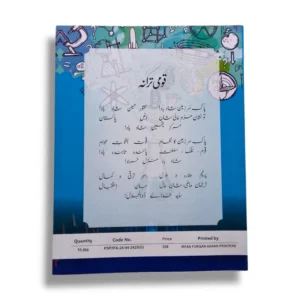 قومی ترانہ
پاک سرزمین شاد باد کشور حسین شاد باد
تو نشان عزم عالی شان ارض پاکستان
مرکز یقین شاد باد
پاک سرزمین کا نظام قوت اخوت عوام
قوم ملک سلطنت پائندہ تابندہ باد
شاد باد منزل مراد
پرچم ستارہ و ہلال رہبر ترقی و کمال
ترجمان ماضی شان حال جان استقبال
سایہ خدائے ذوالجلال
Quantity Code No. Price Printed by